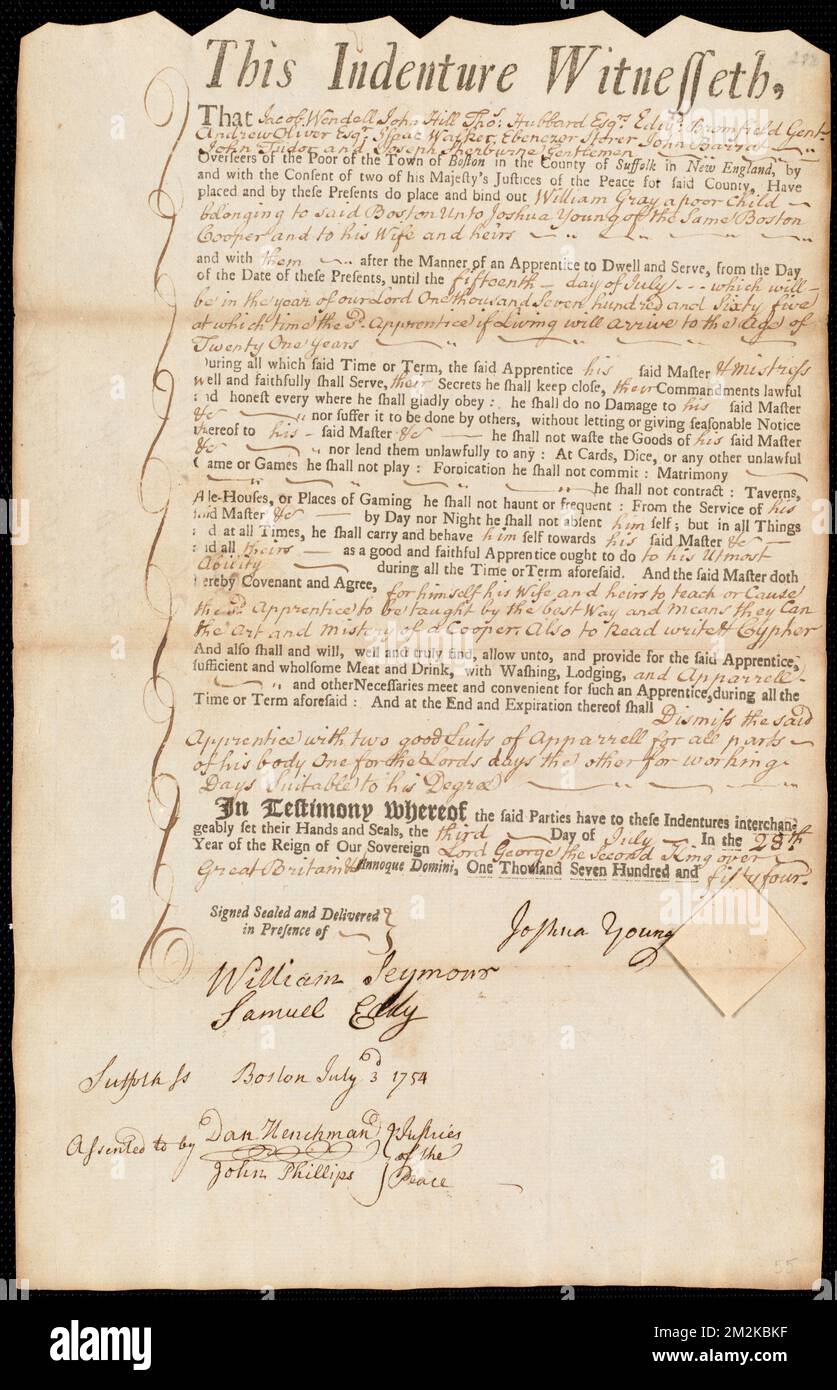 This Indenture Witneſſeth,
That Jacob Wendell John Hill Thos. Hubbard Esqrs. Edwd. Bromfield Gent.
Andrew Oliver Esqr. Isaac Walker, Ebenezer Storer John Barrat
John Tudor and Joseph Sherburne Gentlemen
Overſeers of the Poor of the Town of Boſton in the County of Suffolk in New England, by
and with the Conſent of two of his Majeſty's Juſtices of the Peace for ſaid County, Have
placed and by theſe Preſents do place and bind out William Gray a poor Child
belonging to said Boston Unto Joshua Young of the Same Boston
Cooper and to his Wife and heirs
and with them after the Manner of an Apprentice to Dwell and Serve, from the Day
of the Date of theſe Preſents, until the fifteenth day of July which will
be in the year of our Lord One thousand Seven hundred and Sixty five
at which time the sd. Apprentice if Living will arrive to the Age of
Twenty One years
During all which ſaid Time or Term, the ſaid Apprentice his ſaid Maſter & Mistress
well and faithfully ſhall Serve, their Secrets he ſhall keep cloſe, their Commandments lawful
and honeſt every where he ſhall gladly obey: he ſhall do no Damage to his ſaid Maſter
&c nor ſuffer it to be done by others, without letting or giving ſeaſonable Notice
thereof to his ſaid Maſter &c he ſhall not waſte the Goods of his ſaid Maſter
&c nor lend them unlawfully to any: At Cards, Dice, or any other unlawful
Game or Games he ſhall not play: Fornication he ſhall not commit: Matrimony
he ſhall not contract: Taverns,
Ale-Houſes, or Places of Gaming he ſhall not haunt or frequent: From the Service of his
ſaid Maſter &c by Day nor Night he ſhall not abſent him ſelf; but in all Things
and at all Times, he ſhall carry and behave him ſelf towards his ſaid Maſter &c
and all theirs as a good and faithful Apprentice ought to do to his Utmost
Ability during all the Time or Term aforeſaid. And the ſaid Maſter doth
hereby Covenant and Agree, for himself his Wife and heirs to teach or Cause
the sd. Apprentice to be taught by the best Way and means they Can
the Art and mistery of a Cooper. Also to Read write & Cypher
And alſo ſhall and will, well and truly find, allow unto, and provide for the ſaid Apprentice,
ſufficient and wholſome Meat and Drink, with Waſhing, Lodging, and Apparrell
and other Neceſſaries meet and convenient for ſuch an Apprentice, during all the
Time or Term aforeſaid: And at the End and Expiration thereof ſhall Dismiss the said
Apprentice with two good Suits of Apparrell for all parts
of his body One for the Lords days the other for working
Days Suitable to his Degree
In Teſtimony whereof the ſaid Parties have to theſe Indentures interchan-
geably ſet their Hands and Seals, the third Day of July In the 28th
Year of the Reign of Our Sovereign Lord George the Second King over
Great Britain &c Annoque Domini, One Thouſand Seven Hundred and fifty four.
Signed Sealed and Delivered
in Preſence of
Joshua Young
William Seymour
Samuel Eddy
Suffolk ss Boston July 3d 1754
Assented to by Dan Henchman
John Phillips
Justices
of the
Peace
55
alamy
Image ID: 2M2KBKF
www.alamy.com